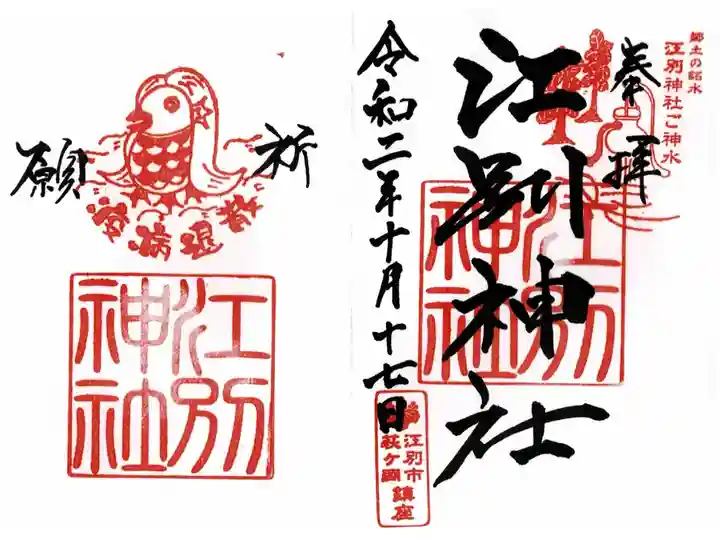 郷土の銘水
江別神社ご神水
奉拝
江別神社
江別神社
令和二年十月十七日
江別市
萩ケ岡
鎮座
祈願
疫病退散
江別神社